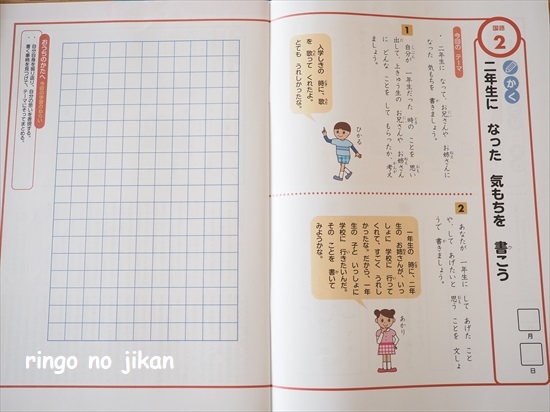 国語
2
かく
二年生に なった 気もちを 書こう
月
日
今回の テーマ
二年生に なって、お兄さんや お姉さんに
なった 気もちを 書きましょう。
1
自分が 一年生だった 時の ことを 思い
出して、上きゅう生の お兄さんや お姉さん
に どんな ことを して もらったか、考え
ましょう。
入学しきの 時に、歌
を 歌って くれたよ。
とても うれしかったな。
ひかる
2
あなたが 一年生に して あげた こと
や、して あげたいと 思う ことを 文しょ
うで 書きましょう。
一年生の 時に、二年
生の お姉さんが、いっ
しょに 学校に 行って
くれて、すごく うれし
かったな。だから、一年
生の 子と いっしょに
学校に 行きたいんだ。
その ことを 書いて
みようかな。
あかり
おうちのかたへ
ringo no jikan